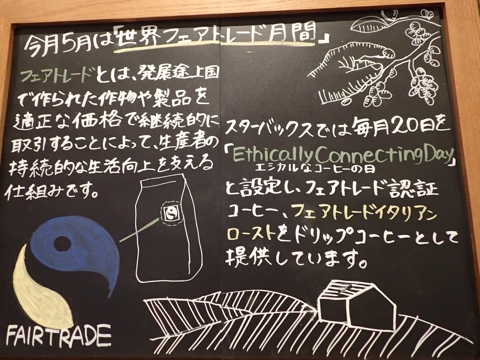 今月5月は「世界フェアトレード月間」
フェアトレードとは、発展途上国
で作られた作物や製品を
適正な価格で継続的に
取引することによって、生産者の
持続的な生活向上を支える
仕組みです。
FAIRTRADE
スターバックスでは毎月20日を
「Ethically Connecting Day」
エシカルなコーヒーの日
と設定し、フェアトレード認証
コーヒー、フェアトレードイタリアン
ローストをドリップコーヒーとして
提供しています。